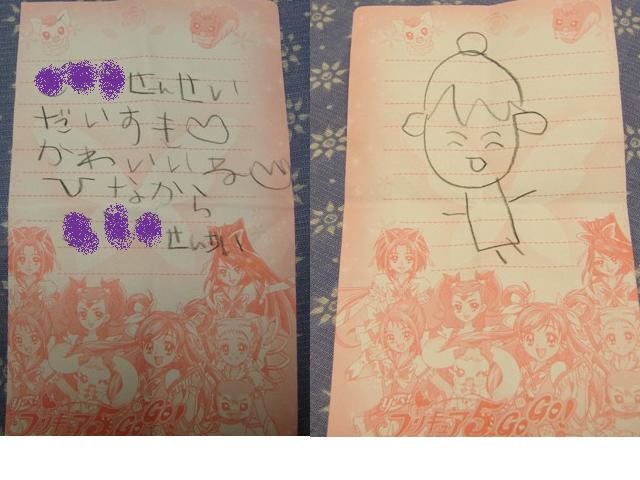 せんせい
だいすき♡
かわいいね♡
ひなから
せんせい
Yes!
プリキュア5 GoGo!
プリキュア5 GoGo!